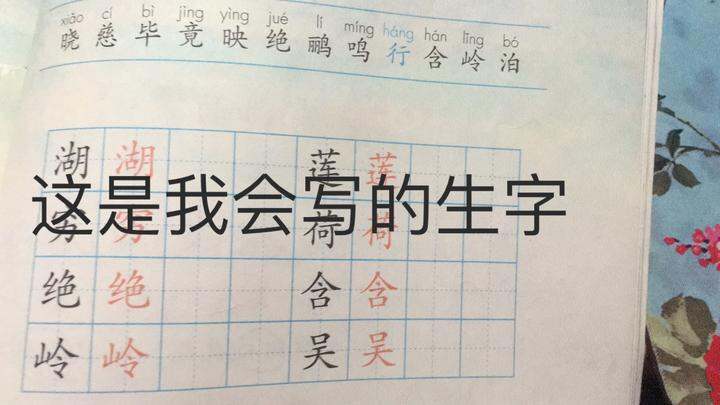 xiǎo cí bì jìng yìng jué lí míng háng hán lǐng bó
晓 慈 毕 竟 映 绝 鹂 鸣 行 含 岭 泊
湖 湖 莲 莲
这是我会写的生字
穷 穷 荷 荷
绝 绝 含 含
岭 岭 吴 吴